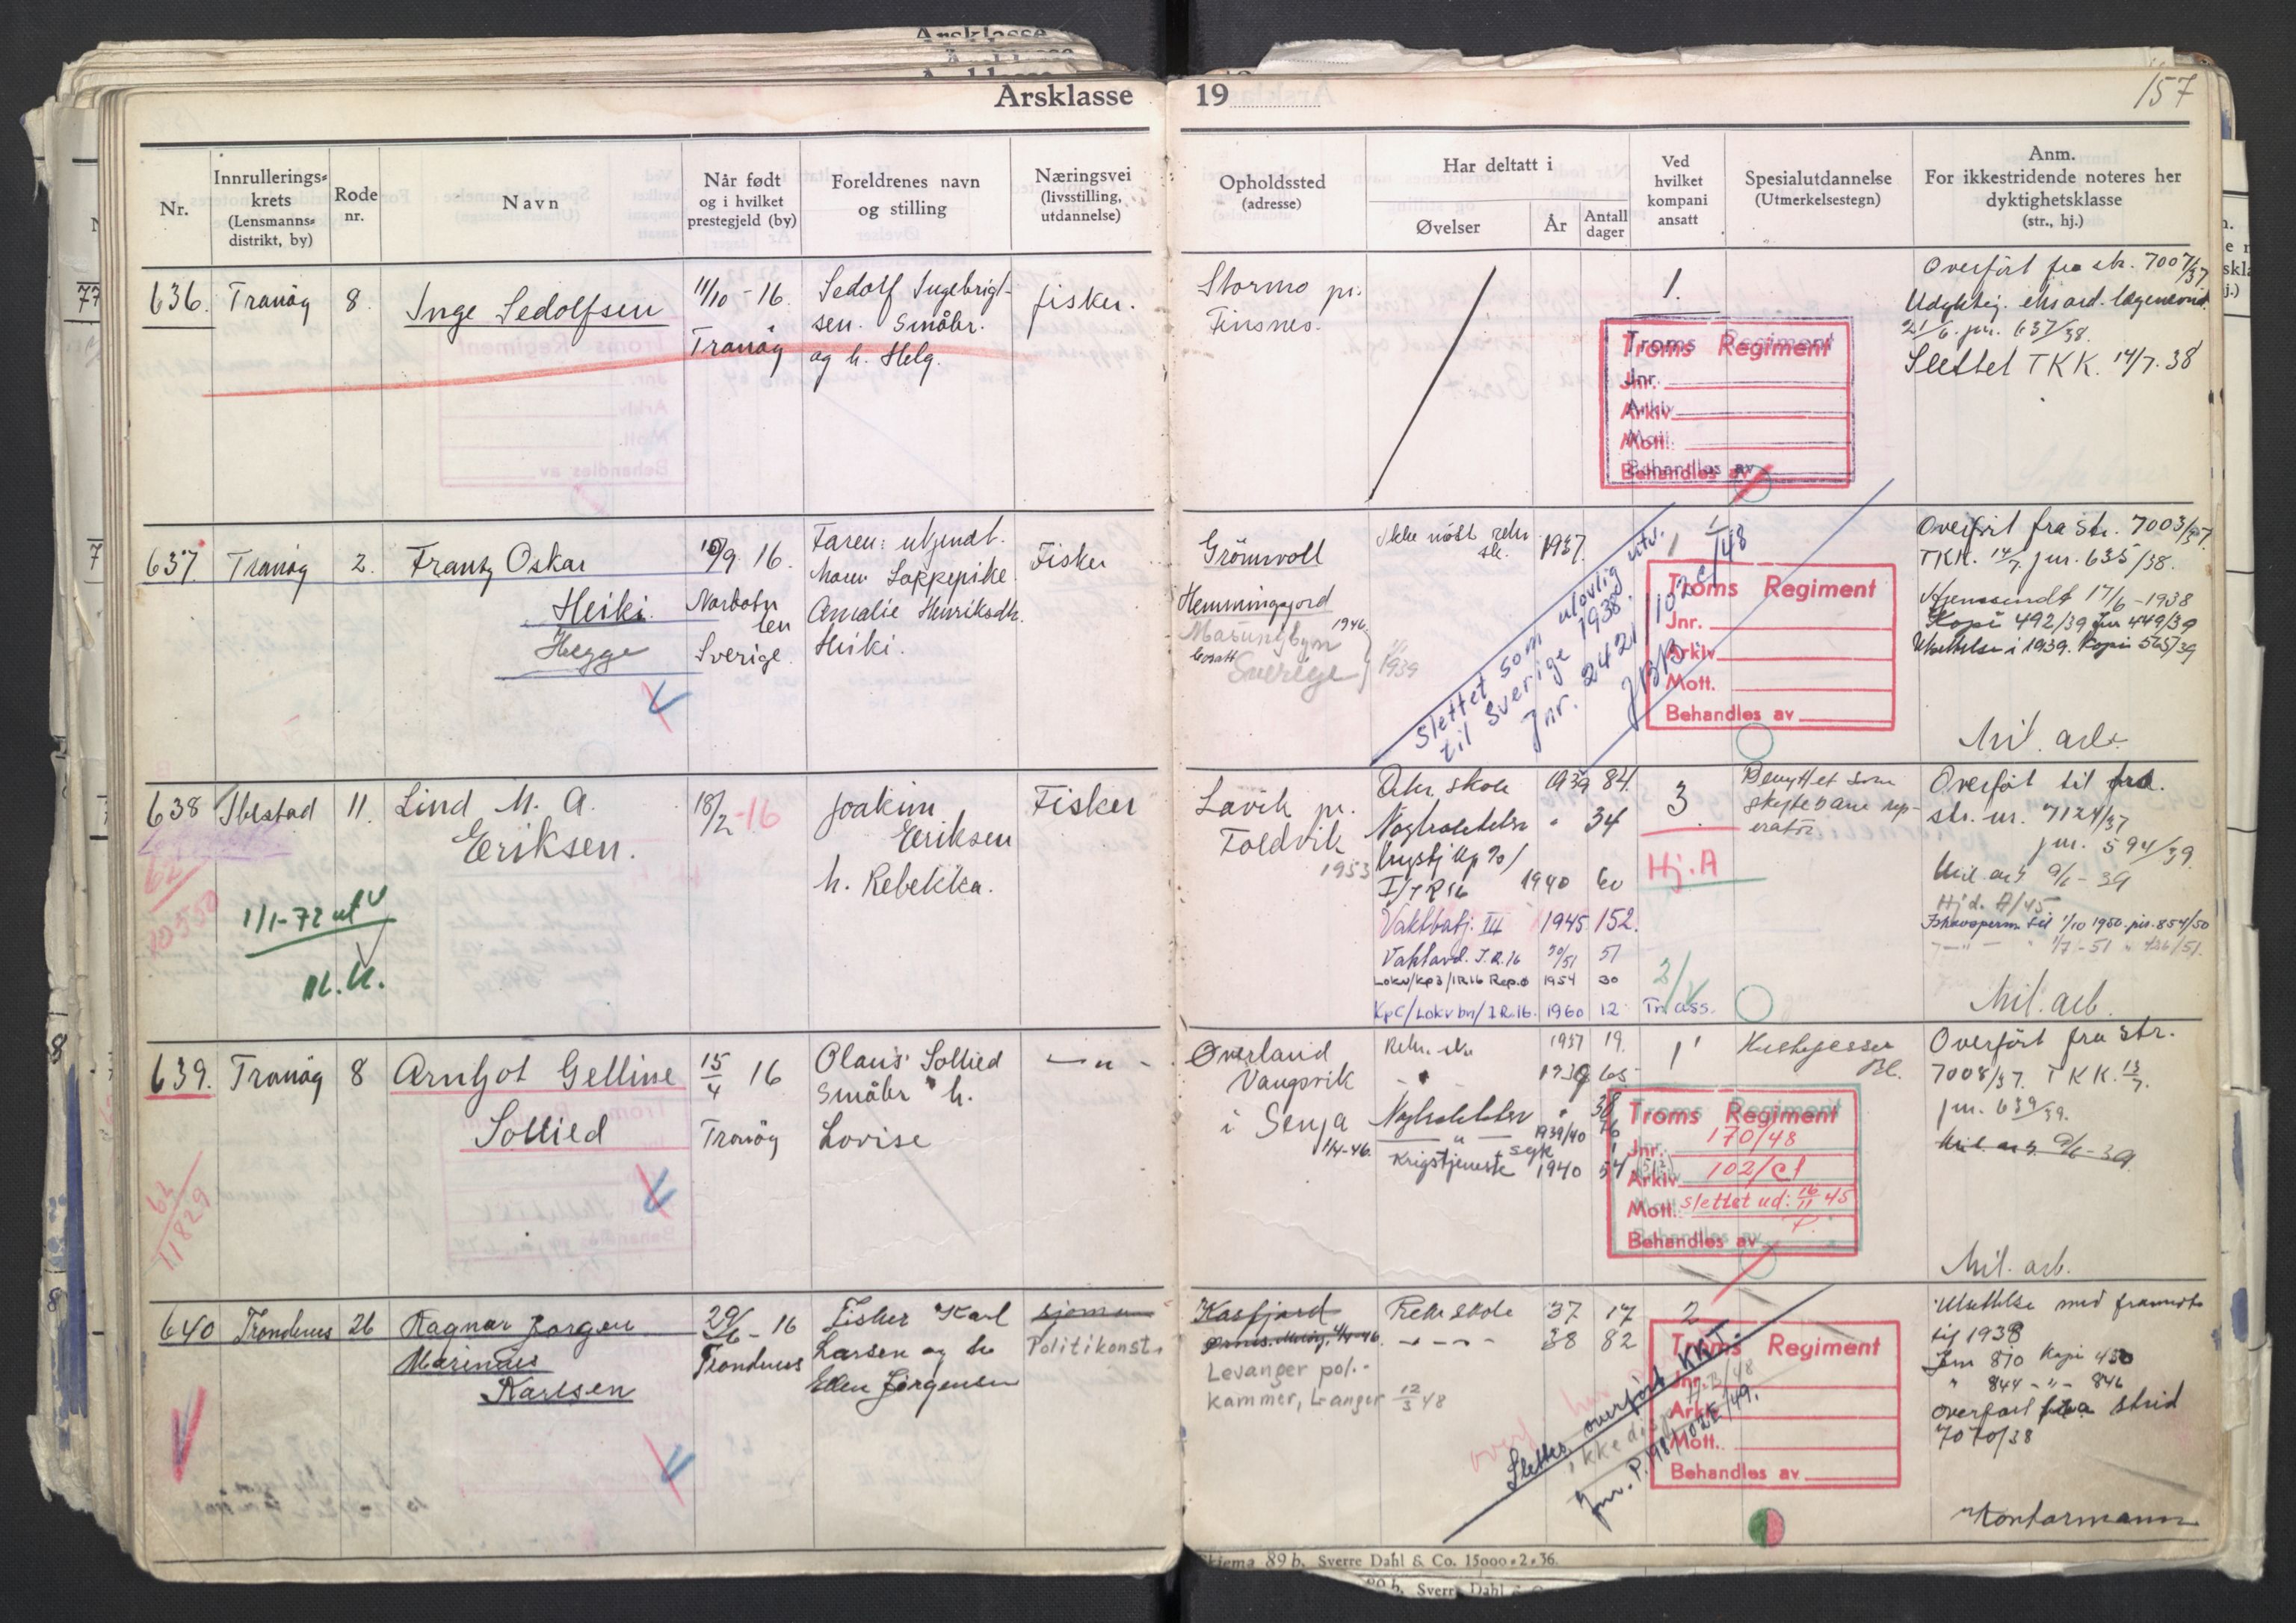 Årsklasse 19
157
Nr.
Innrullerings-
krets
(Lensmanns-
distrikt, by)
Rode
nr.
Navn
Når født
og i hvilket
prestegjeld (by)
Foreldrenes navn
og stilling
Næringsvei
(livsstilling,
utdannelse)
Opholdssted
(adresse)
Har deltatt i
Øvelser
År
Antall
dager
Ved
hvilket
kompani
ansatt
Spesialutdannelse
(Utmerkelsestegn)
Anm.
For ikkestridende noteres her
dyktighetsklasse
(str., hj.)
636. Tranöy 8. Inge Sedolfsen
11/10 - 16.
Tranöy
Sedolf Ingebrigt-
sen. Småbr.
og h. Helg.
fisker.
Stormo pr.
Finsnes.
1.
Troms Regiment
Jnr.
Arkiv
Mott.
Behandles av
Overfört fra str. 7007/37.
21/6. jnr. 637/38.
Slettet TKK. 14/7. 38
637. Tranöy 2. Frantz Oskar
Heiki.
Hegge
10/9 16.
Norbotn
len
Sverige.
Faren: ukjendt.
Mor: Lappepike
Amalie Henriksdtr.
Heiki.
Fisker
Grönnvoll
Hemmingsjord
1946
Masungbyn
Sverige
1939
Ikke möst rekr
sk. 1937.
Slettet som ulovlig utv.
til Sverige 1938.
Jnr. 2421 102c/48
1
Troms Regiment
Jnr.
Arkiv
Mott.
Behandles av
Overfört fra str. 7003/37.
TKK. 14/7. jnr. 635/38.
Hjemsendt 17/6 - 1938
Kopi 492/39 Jnr 449/39
Utsettelse i 1939. Kopi 565/39
Mil. arb.
638 Ibestad 11. Lind M. A.
Eriksen.
18/2 -16
Joakim
Eriksen
h. Rebekka.
Fisker
10550
1/1-72 ut
M.U.
Lavik pr.
Foldvik
1953
Rekr. skole 1939 84.
Nøytralitetsv " 34
I/IR16 1940 60
Vaktbatj. III 1945 152.
Vaktavd. I.R.16 50/51 51
Lokv/kp3/IR16 Rep.ø 1954 30
KpC/Lokvbn/IR.16. 1960 12
3
Hj.A
Tr. ass.
Benyttet som
skytebane rep-
eratör
Overfört til fra.
str. nr. 7124/37
jnr. 594/39.
Mil. arb 9/6 - 39
Hjd. A/45
Ishavsperm. til 1/10 1950. jnr. 854/50
Mil. arb.
639. Tranöy 8 Arnljot Gelline
Sollied
15/4 16
Tranöy
Olaus Sollied
Småbr h.
Lovise
— " -
62
11829
Överland
Vangsvik
i Senja
1/4-46.
Rekr. sk. 1937 19.
1939 65
Nøytralitetsv " 38
— " — 1939/40 76
Krigstjeneste 1940 54
1
Troms Regiment
Jnr. 170/48
Arkiv 102/c1
Mott. slettet ud: 16/11 45
Behandles av
Overfört fra str.
7008/37. TKK. 13/7.
jnr. 639/39.
Mil. arb. 9/6 - 39.
Mil. arb.
640 Trondenes 26 Ragnar Jørgen
Marinius
Karlsen
29/6 - 16
Trondenes
Fisker Karl
Larsen og hu
Ellen Jørgensen
sjømann
Politikonst.
Kasfjord
Levanger pol.-
kammer, L-anger 12/3 48
Rekr skole 37 17
— - - - 38 82
Slettes overført KRT.
Jnr. P.1981/102E/49.
2
Troms Regiment
Jnr.
Arkiv
Mott.
Behandles av
Utsettelse med frammøte
til 1938
Jnr 810 Kopi 450
" 844 - " - 846
overført fra strid
7070/38
Kontormann
Skjema 89 b. Sverre Dahl & Co. 15000.2.36.